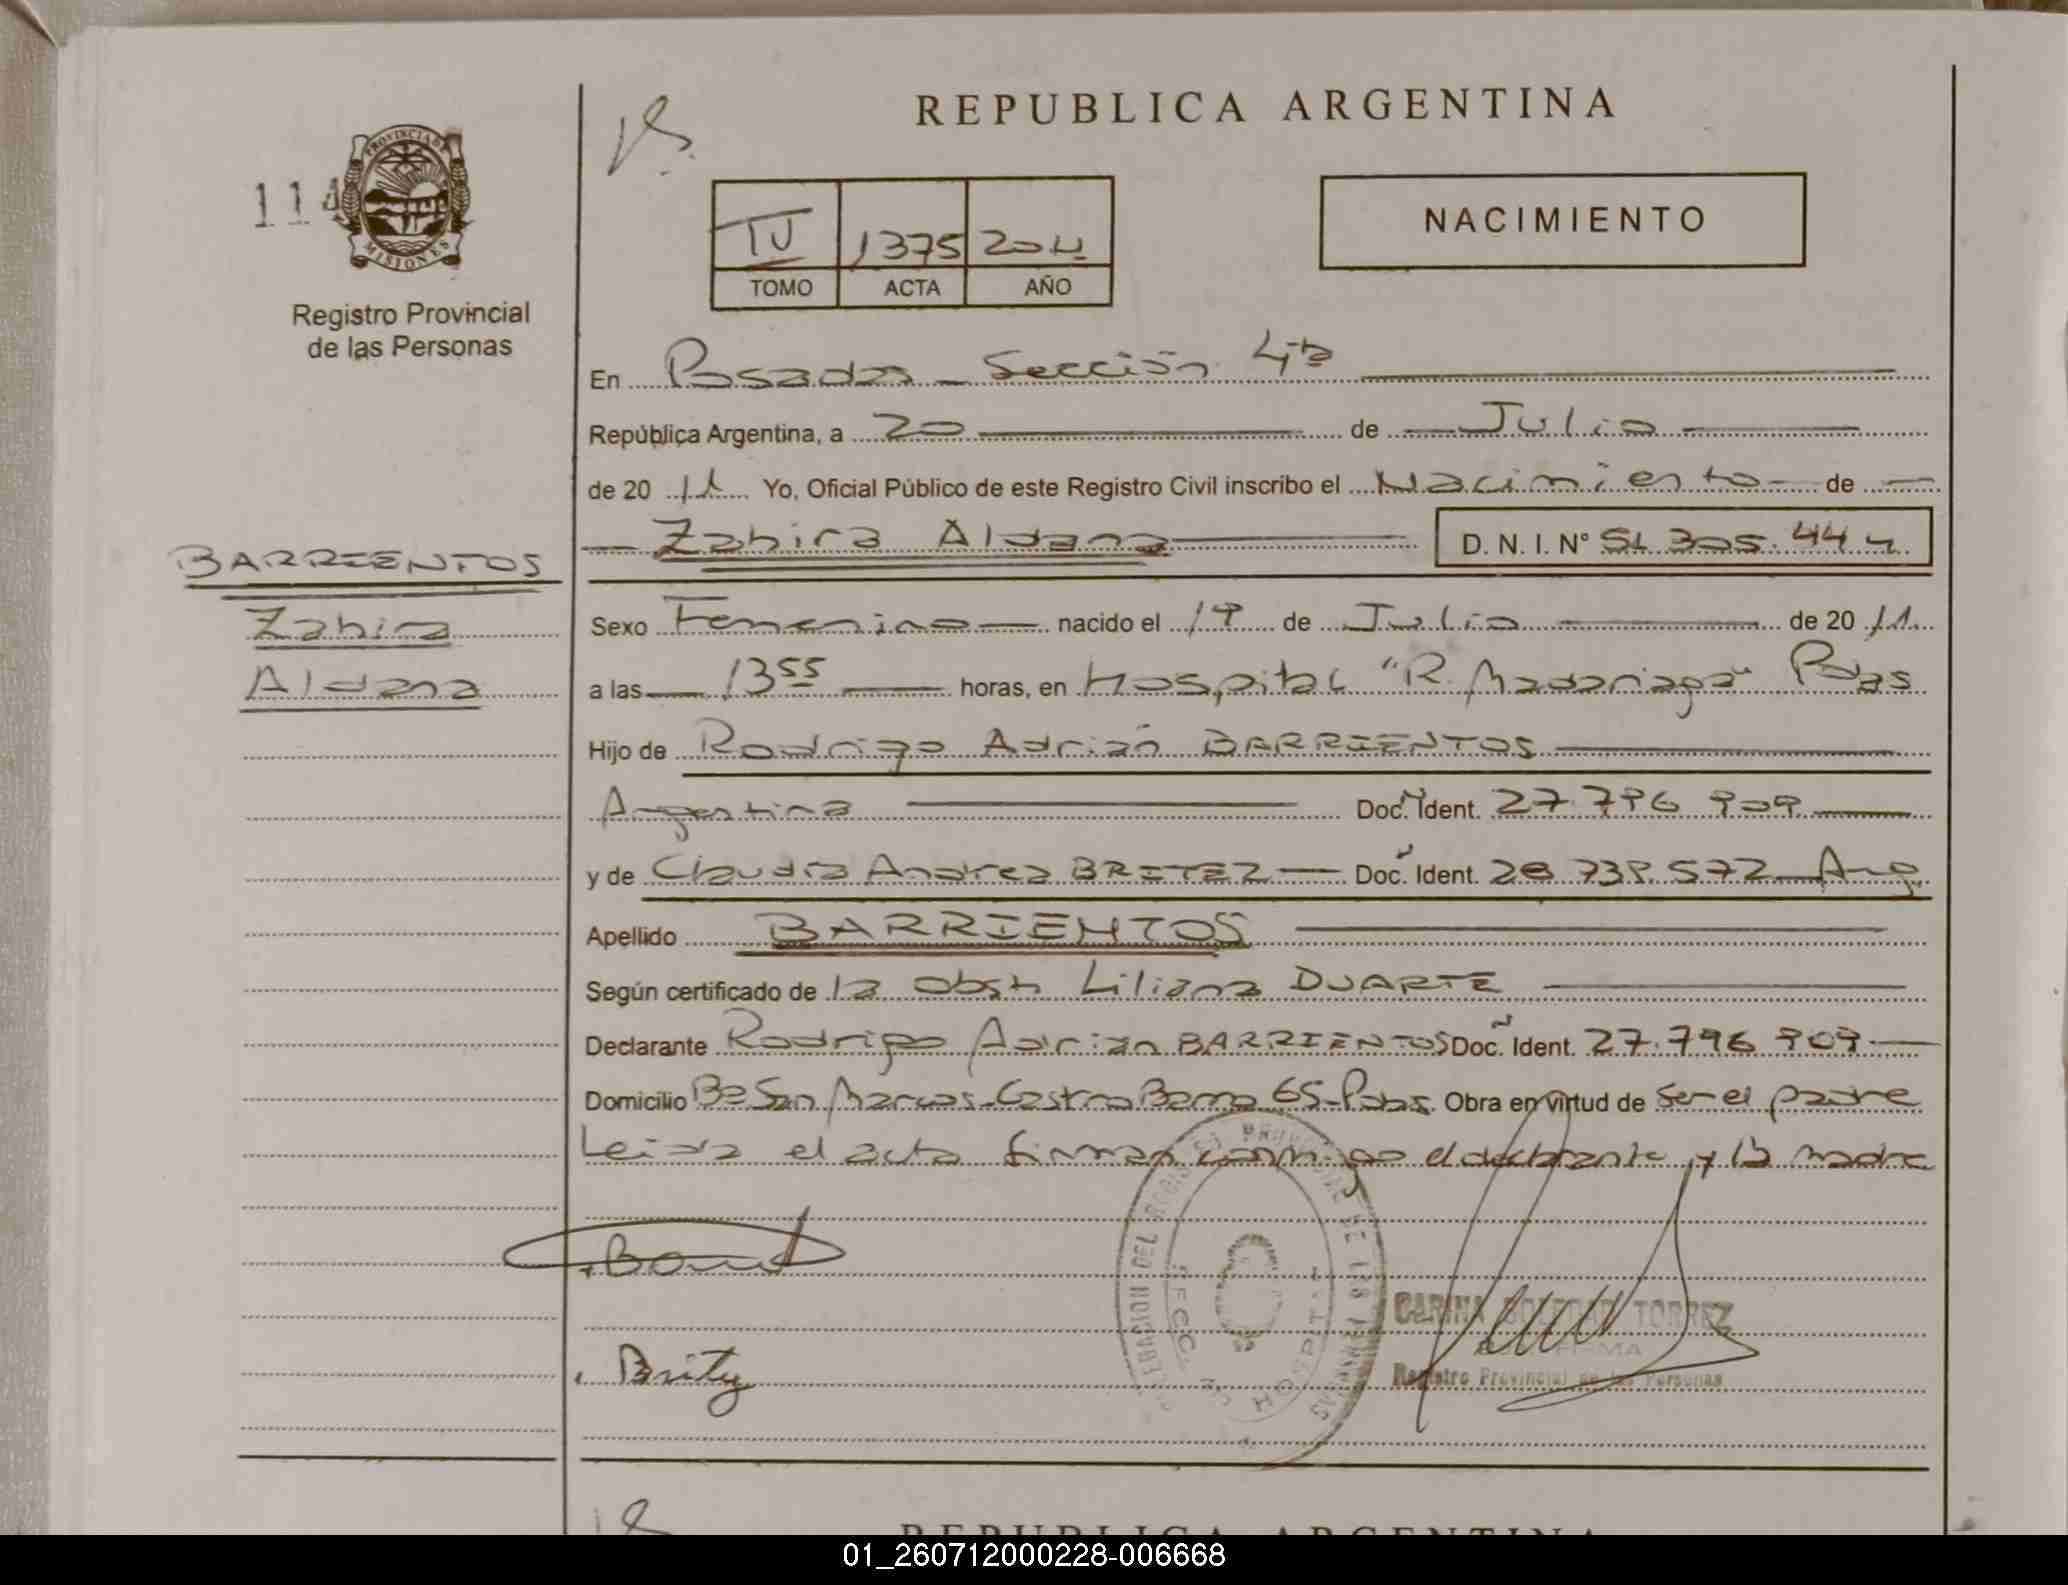 REPUBLICA ARGENTINA
114
PROVINCIA DE
MISIONES
Registro Provincial
de las Personas
IV 1375 2011
TOMO ACTA AÑO
NACIMIENTO
En Posadas - Sección 4ta
República Argentina, a 20 de Julio
de 20 11 Yo, Oficial Público de este Registro Civil inscribo el Nacimiento de
Zahira Aldana D. N. I. N° 51.305.444
BARRIENTOS
Zahira
Aldana
Sexo Femenino nacido el 19 de Julio de 20 11
a las 13 55 horas, en Hospital "R. Madariaga" Pdas
Hijo de Rodrigo Adrián BARRIENTOS
Argentina Doc. Ident. 27.796.909
y de Claudia Andrea BRITEZ Doc. Ident. 28.739.572 Arg.
Apellido BARRIENTOS
Según certificado de la Obst. Liliana DUARTE
Declarante Rodrigo Adrian BARRIENTOS Doc. Ident. 27.796.909
Domicilio Bº San Marcos - Castro Barros 65 - Pdas. Obra en virtud de ser el padre
Leida el acta firman conmigo el declarante y la madre
CARINA SOLEDAD TORREZ
FIRMA
Registro Provincial de las Personas
HOSPITAL
REPUBLICA ARGENTINA
01_260712000228-006668